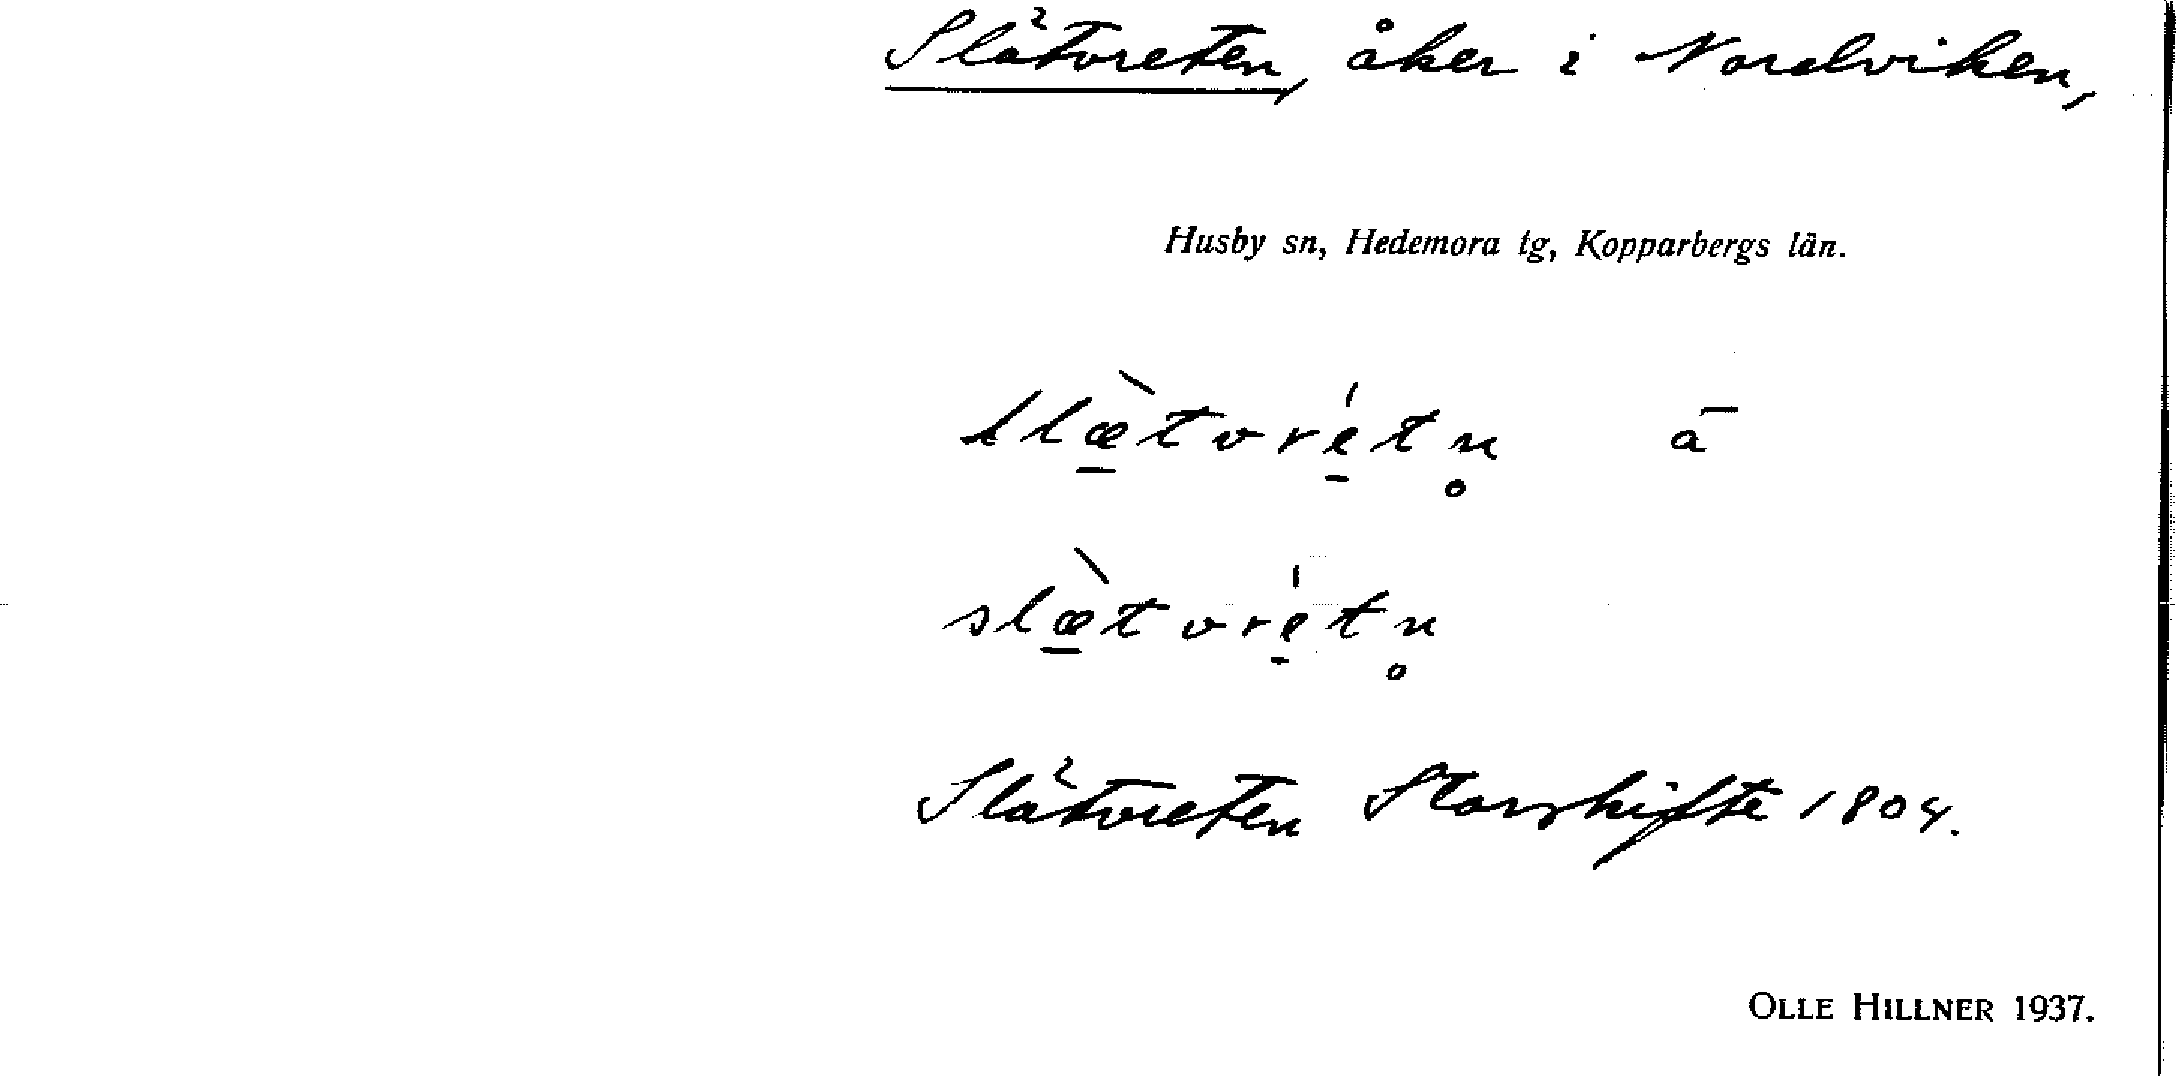 Slätvreten, åker i Nordviken,
Husby sn, Hedemora tg, Kopparbergs län.
slæ̠̀tvré̠tn̥ ā
slæ̠̀tvré̠tn̥
Slätvreten Storskifte 1804.
OLLE HILLNER 1937.